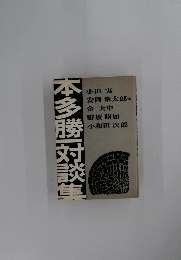 本多勝一対談集
小田 実
安岡 章太郎
金 大中
野坂 昭如
小和田 次郎